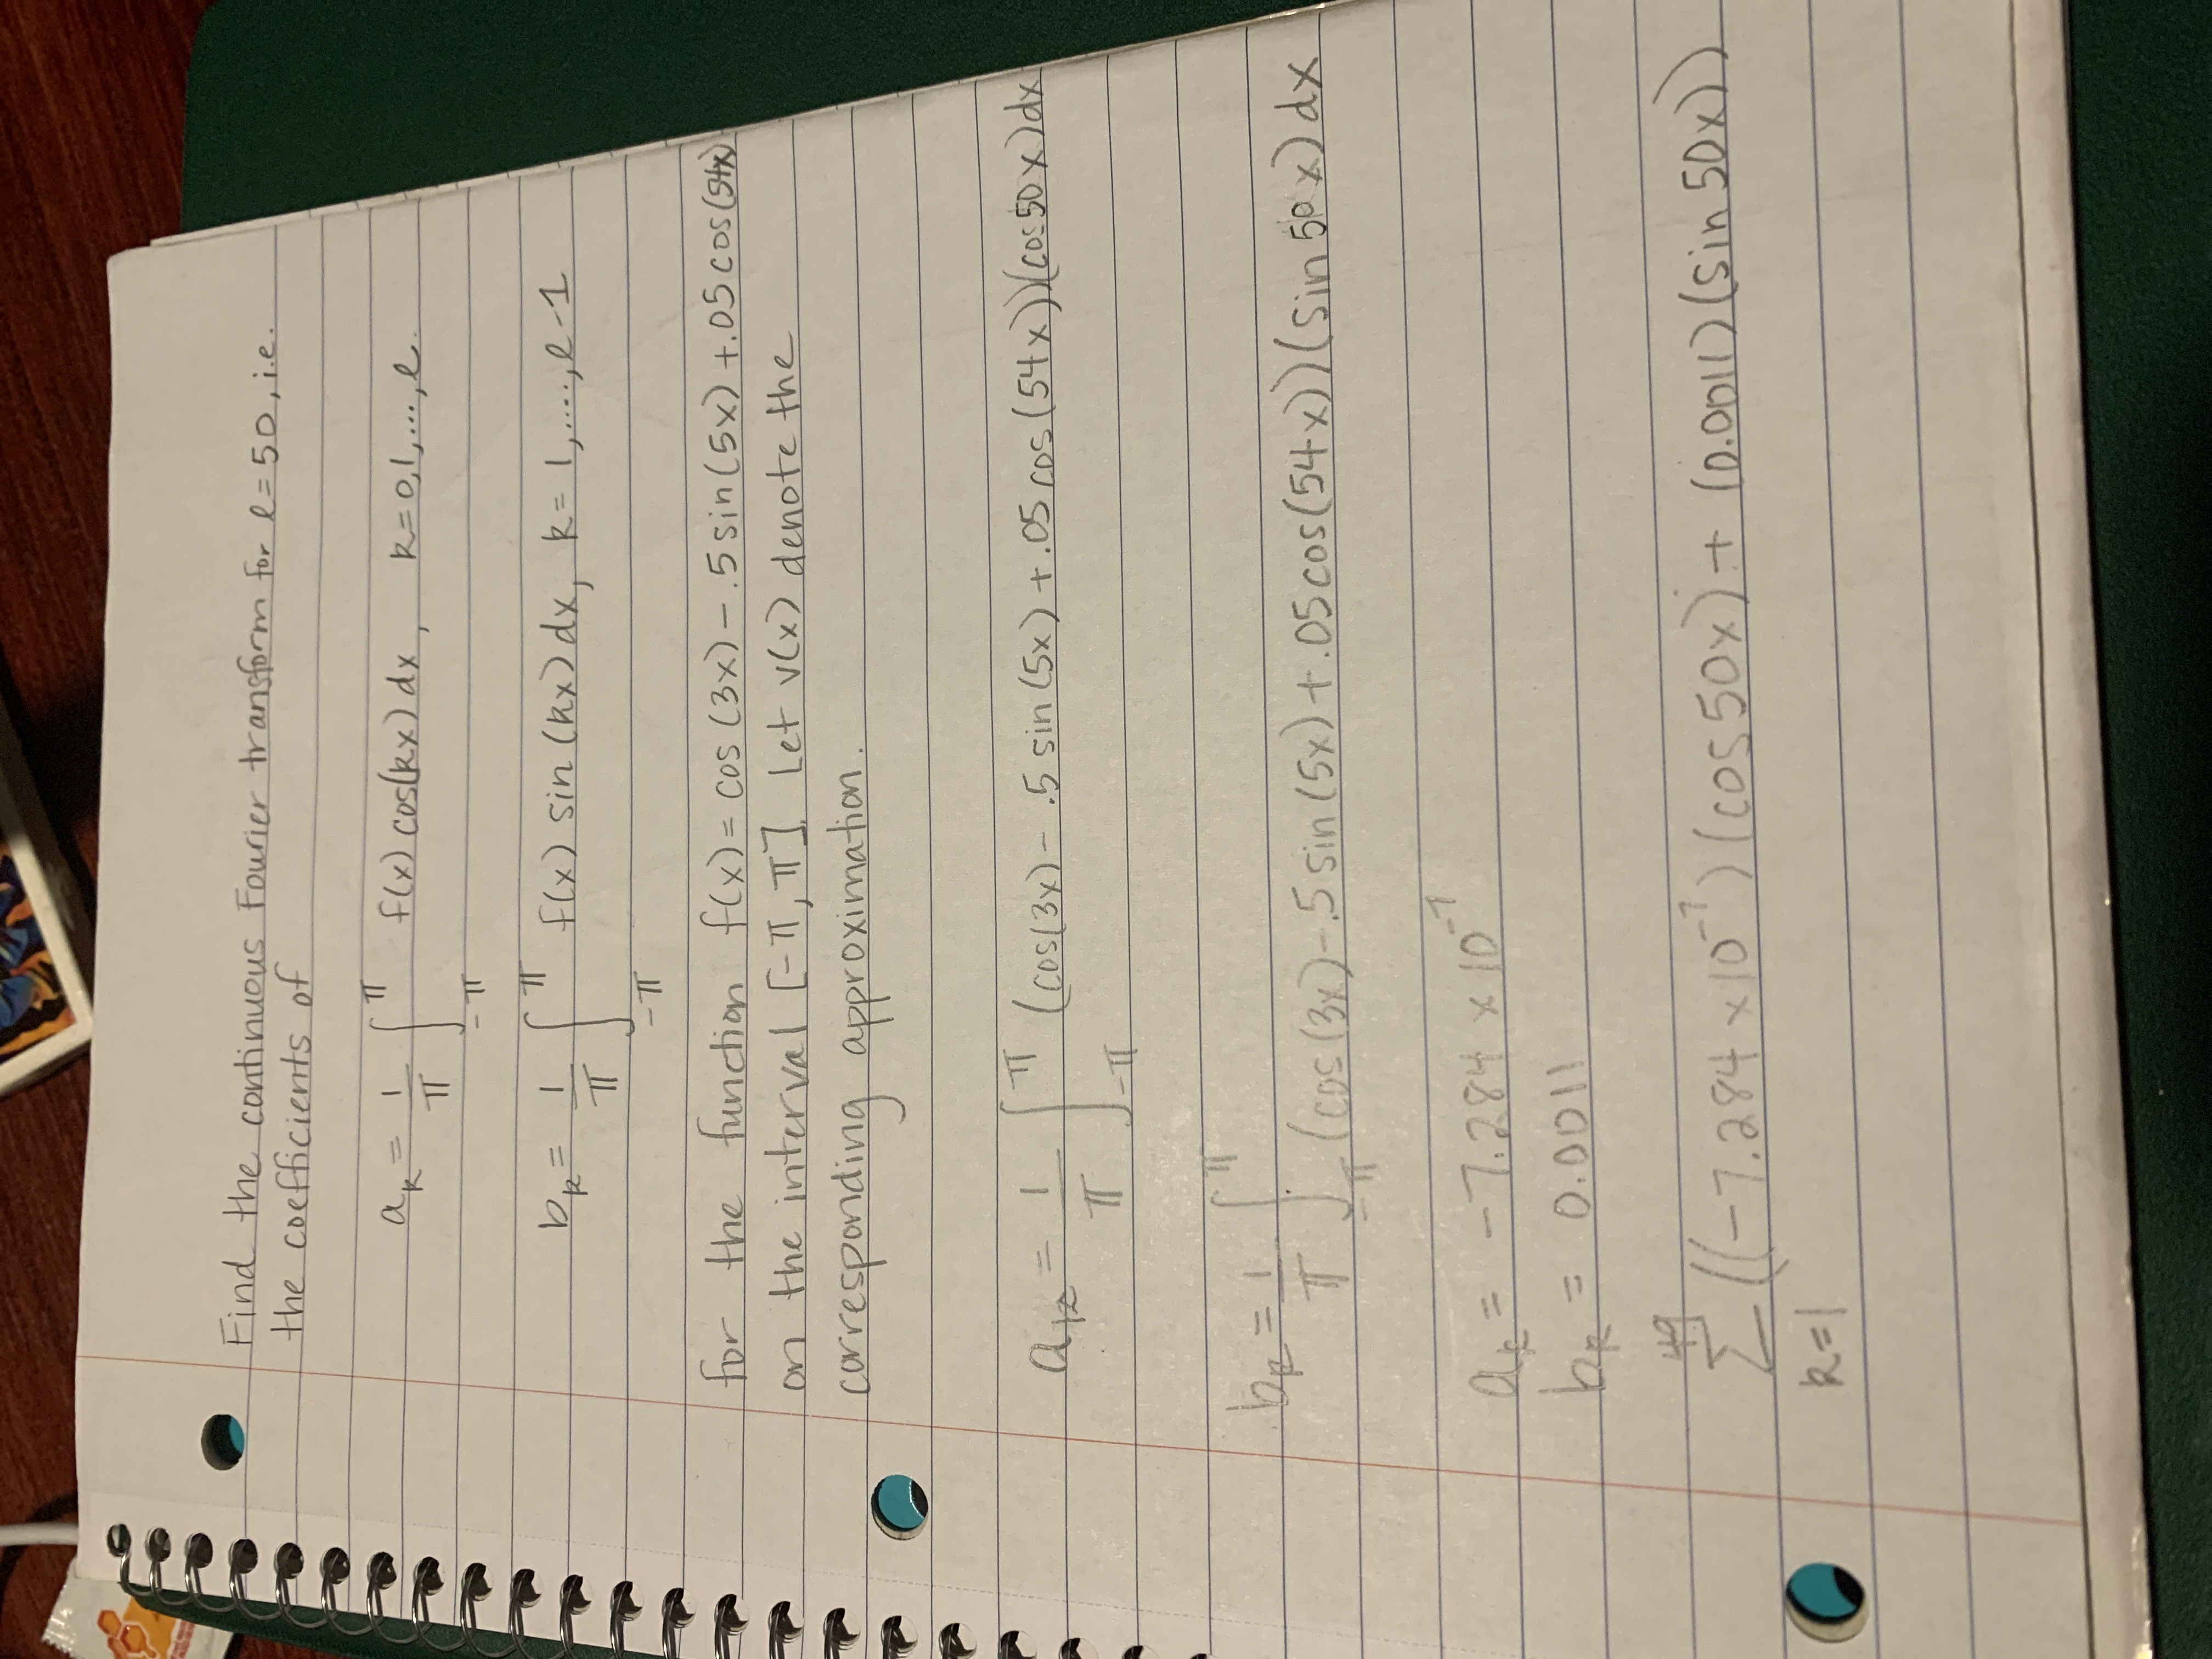 Find the continuous Fourier transform for l=50, i.e.
the coefficients of
a_k = 1/π ∫_{-π}^{π} f(x) cos(kx) dx, k=0,1,...,l.
b_k = 1/π ∫_{-π}^{π} f(x) sin (kx) dx, k= 1,....,l-1
for the function f(x)= cos (3x) - .5 sin(5x) +.05 cos(54x)
on the interval [-π, π]. Let v(x) denote the
corresponding approximation.
a_k = 1/π ∫_{-π}^{π} (cos(3x)- .5 sin (5x) +.05 cos (54x))(cos 50x) dx
b_k = 1/π ∫_{-π}^{π} (cos (3x)-.5 sin (5x) +.05 cos(54x))(sin 50x) dx
a_k = -7.284 x 10^{-7}
b_k = 0.0011
∑_{k=1}^{49} ((-7.284 x10^{-7}) (cos 50x) + (0.0011) (sin 50x))